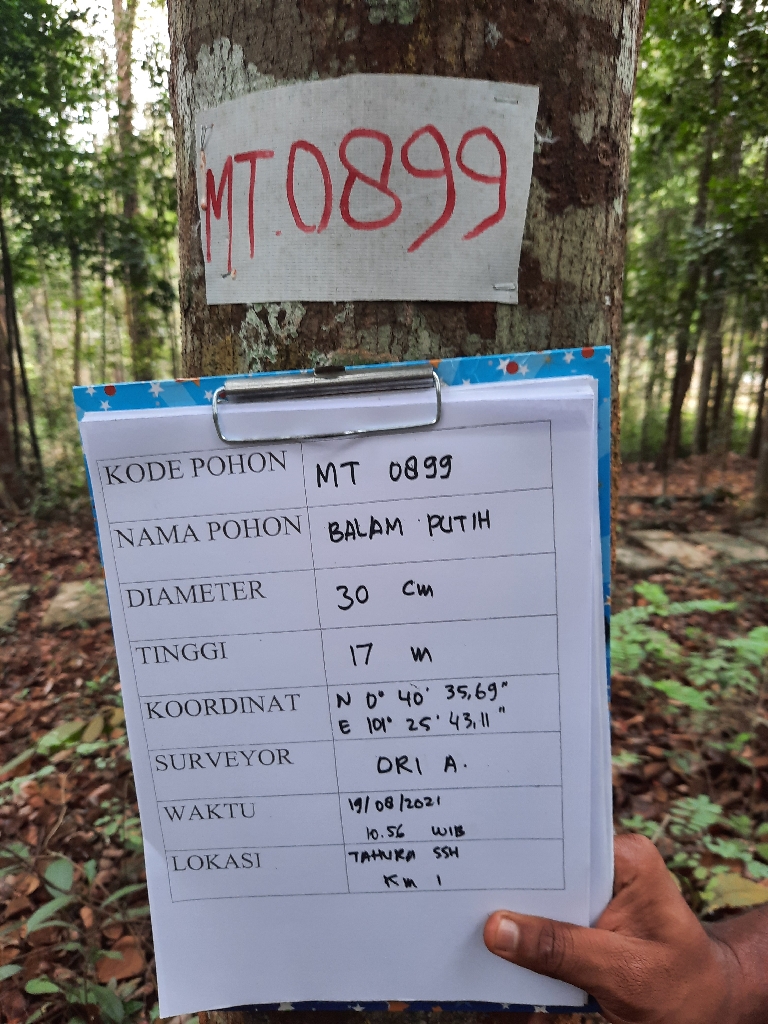 MT.0899
KODE POHON MT 0899
NAMA POHON BALAM PUTIH
DIAMETER 30 Cm
TINGGI 17 m
KOORDINAT N 0° 40' 35,69"
E 101° 25' 43,11"
SURVEYOR ORI A.
WAKTU 19/08/2021
10.56 WIB
LOKASI TAHURA SSH
Km 1